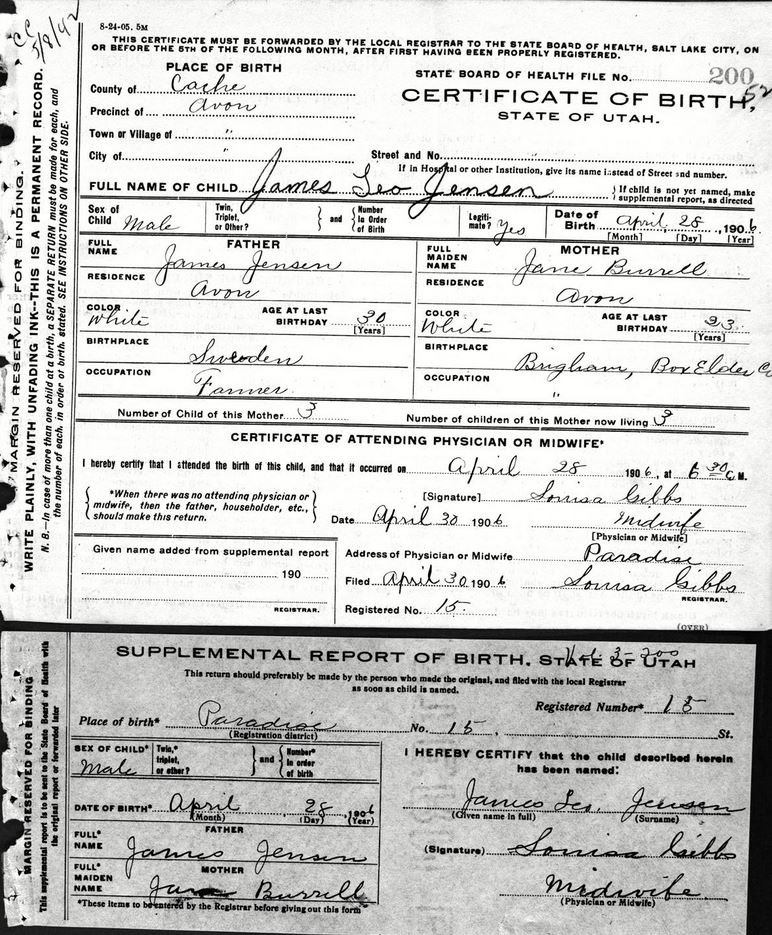 CC
5/8/42
8-24-05. 5M
THIS CERTIFICATE MUST BE FORWARDED BY THE LOCAL REGISTRAR TO THE STATE BOARD OF HEALTH, SALT LAKE CITY, ON
OR BEFORE THE 5TH OF THE FOLLOWING MONTH, AFTER FIRST HAVING BEEN PROPERLY REGISTERED.
MARGIN RESERVED FOR BINDING.
WRITE PLAINLY, WITH UNFADING INK--THIS IS A PERMANENT RECORD.
N. B.—In case of more than one child at a birth, a SEPARATE RETURN must be made for each, and
the number of each, in order of birth, stated. SEE INSTRUCTIONS ON OTHER SIDE.
PLACE OF BIRTH
STATE BOARD OF HEALTH FILE No. 200
County of Cache
CERTIFICATE OF BIRTH, 52
Precinct of Avon
STATE OF UTAH.
Town or Village of "
City of "
Street and No.
If in Hospital or other Institution, give its name instead of Street and number.
FULL NAME OF CHILD James Leo Jensen
If child is not yet named, make
supplemental report, as directed
Sex of Child Male
Twin, Triplet, or Other?
and
Number in Order of Birth
Legitimate? Yes
Date of Birth April 28, 1906.
[Month] [Day] [Year]
FATHER
FULL NAME James Jensen
RESIDENCE Avon
COLOR White
AGE AT LAST BIRTHDAY 30
[Years]
BIRTHPLACE Sweden
OCCUPATION Farmer
MOTHER
FULL MAIDEN NAME Jane Burrell
RESIDENCE Avon
COLOR White
AGE AT LAST BIRTHDAY 23
[Years]
BIRTHPLACE Brigham, Box Elder Co
OCCUPATION "
Number of Child of this Mother 3
Number of children of this Mother now living 3
CERTIFICATE OF ATTENDING PHYSICIAN OR MIDWIFE*
I hereby certify that I attended the birth of this child, and that it occurred on April 28 1906, at 6 30 M.
*When there was no attending physician or
midwife, then the father, householder, etc.,
should make this return.
[Signature] Louisa Gibbs
Date April 30 1906 Midwife
[Physician or Midwife]
Given name added from supplemental report
190
REGISTRAR.
Address of Physician or Midwife Paradise
Filed April 30 1906 Louisa Gibbs
REGISTRAR.
Registered No. 15.
(OVER)
SUPPLEMENTAL REPORT OF BIRTH. STATE OF UTAH
Vol. 3-200
This return should preferably be made by the person who made the original, and filed with the local Registrar
as soon as child is named.
MARGIN RESERVED FOR BINDING
This supplemental report is to be sent to the State Board of Health with
the original report or forwarded later
Registered Number* 15
Place of birth* Paradise No. 15, St.
(Registration district)
SEX OF CHILD* Male
Twin,* triplet, or other?
and
Number* in order of birth
I HEREBY CERTIFY that the child described herein
has been named:
DATE OF BIRTH* April 28, 1906
(Month) (Day) (Year)
James Leo. Jensen
(Given name in full) (Surname)
FATHER
FULL* NAME James Jensen
(Signature) Louisa Gibbs
MOTHER
FULL* MAIDEN NAME Jane Burrell
Midwife
(Physician or Midwife)
*These items to be entered by the Registrar before giving out this form